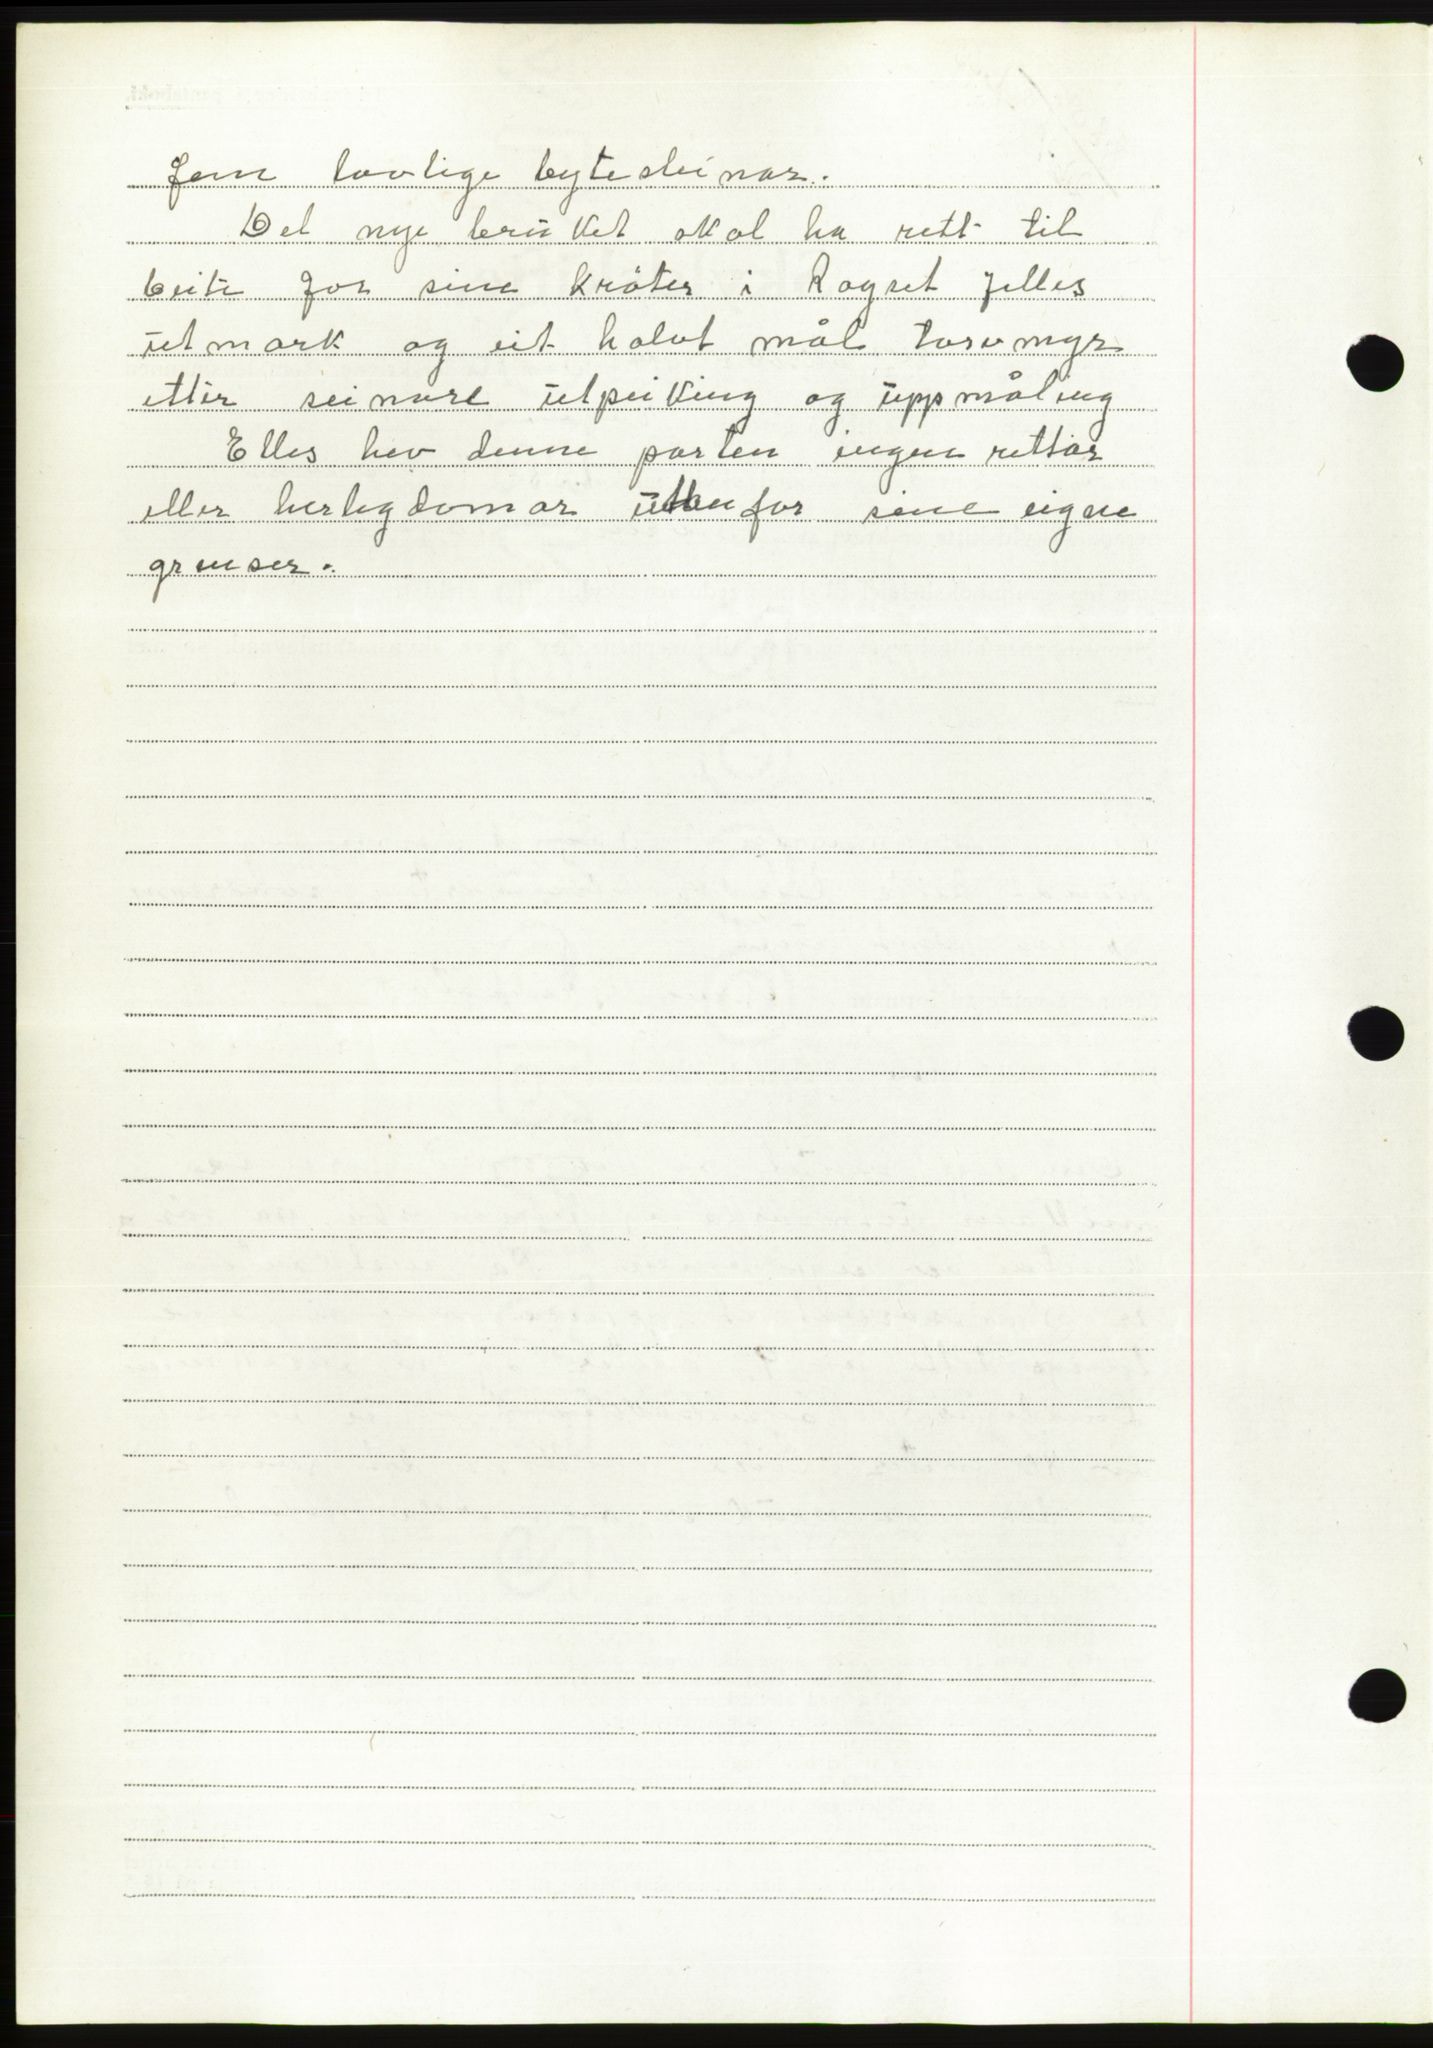 fem lovlige bytesteinar.
Det nye bruket skal ha rett til
beite for sine kröter i Rogset felles
utmark og eit halvt mål torvmyr
etter seinare utpeiking og uppmåling
Elles hev denne parten ingen rettar
eller herlegdomar utenfor sine eigne
grenser.